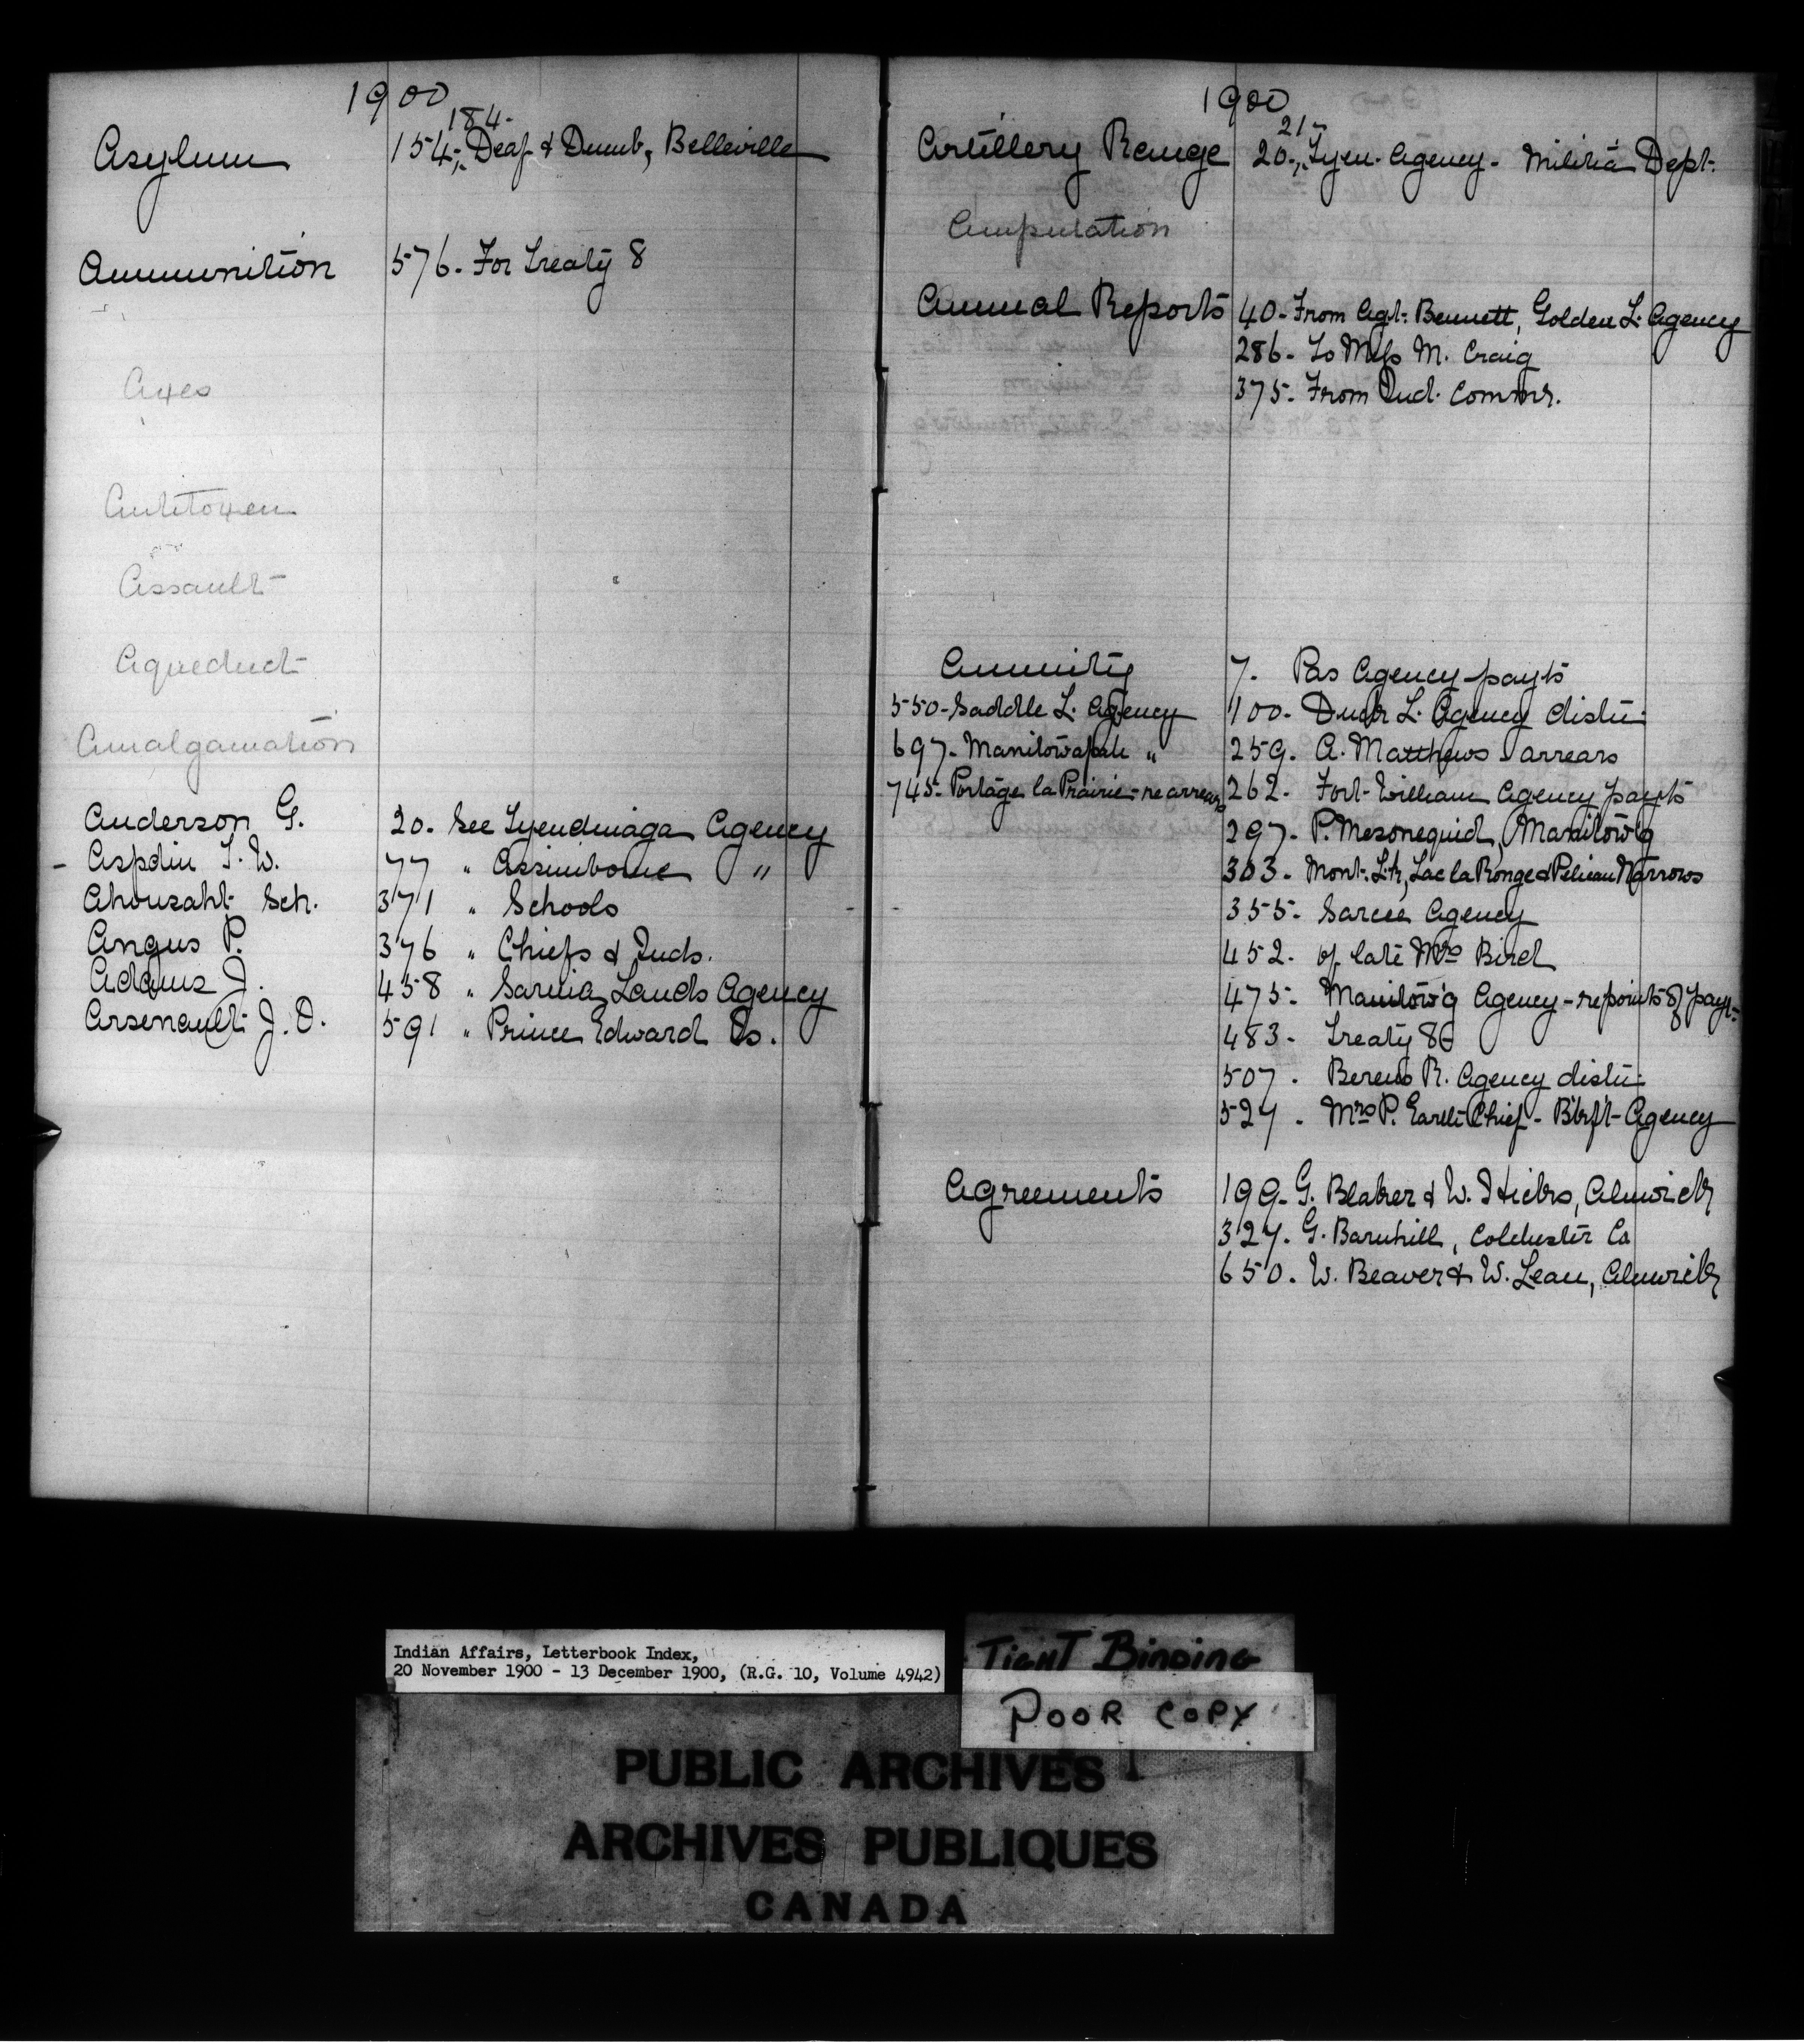 1900
184-
Asylum 154-, Deaf & Dumb, Belleville
Ammunition 576- For Treaty 8
Axes
Antitoxen
Assault
Aqueduct
Amalgamation
Anderson G. 20- See Tyendinaga Agency
- Aspdin T. W. 77 " Assiniboine "
Ahousaht Sch. 371 " Schools
Angus P. 376 " Chiefs & Inds.
Adams J. 458 " Sarnia Lands Agency
Arsenault J. O. 591 " Prince Edward Is.
1900
21-
Artillery Range 20-, Tyen. Agency- Militia Dept.
Amputation
Annual Reports 40- From Agt. Bennett, Golden L. Agency
286- To Miss M. Craig
375- From Ind. Commr.
Annuity 7. Pas Agency payts
550- Saddle L. Agency 100- Duck L. Agency distn
697- Manitowapah " 259. A. Matthews arrears
745- Portage la Prairie- re arrears 262- Fort William Agency payts
297- P. Mesonequid, Manitow'g
303- Mont. L. Lac la Ronge & Pelican Narrows
355- Sarcee Agency
452. of late Mrs Bird
475- Manitow'g Agency- reports of payt-
483- Treaty 8
507. Berens R. Agency distn
527. Mrs P. Earth Chief- B'kf't- Agency
Agreements 199- G. Blaker & W. Hicks, Alnwick
327. G. Barnhill, Colchester Co
650. W. Beaver & W. Lean, Alnwick
Indian Affairs, Letterbook Index,
20 November 1900 - 13 December 1900, (R.G. 10, Volume 4942)
TIGHT BINDING
POOR COPY
PUBLIC ARCHIVES
ARCHIVES PUBLIQUES
CANADA